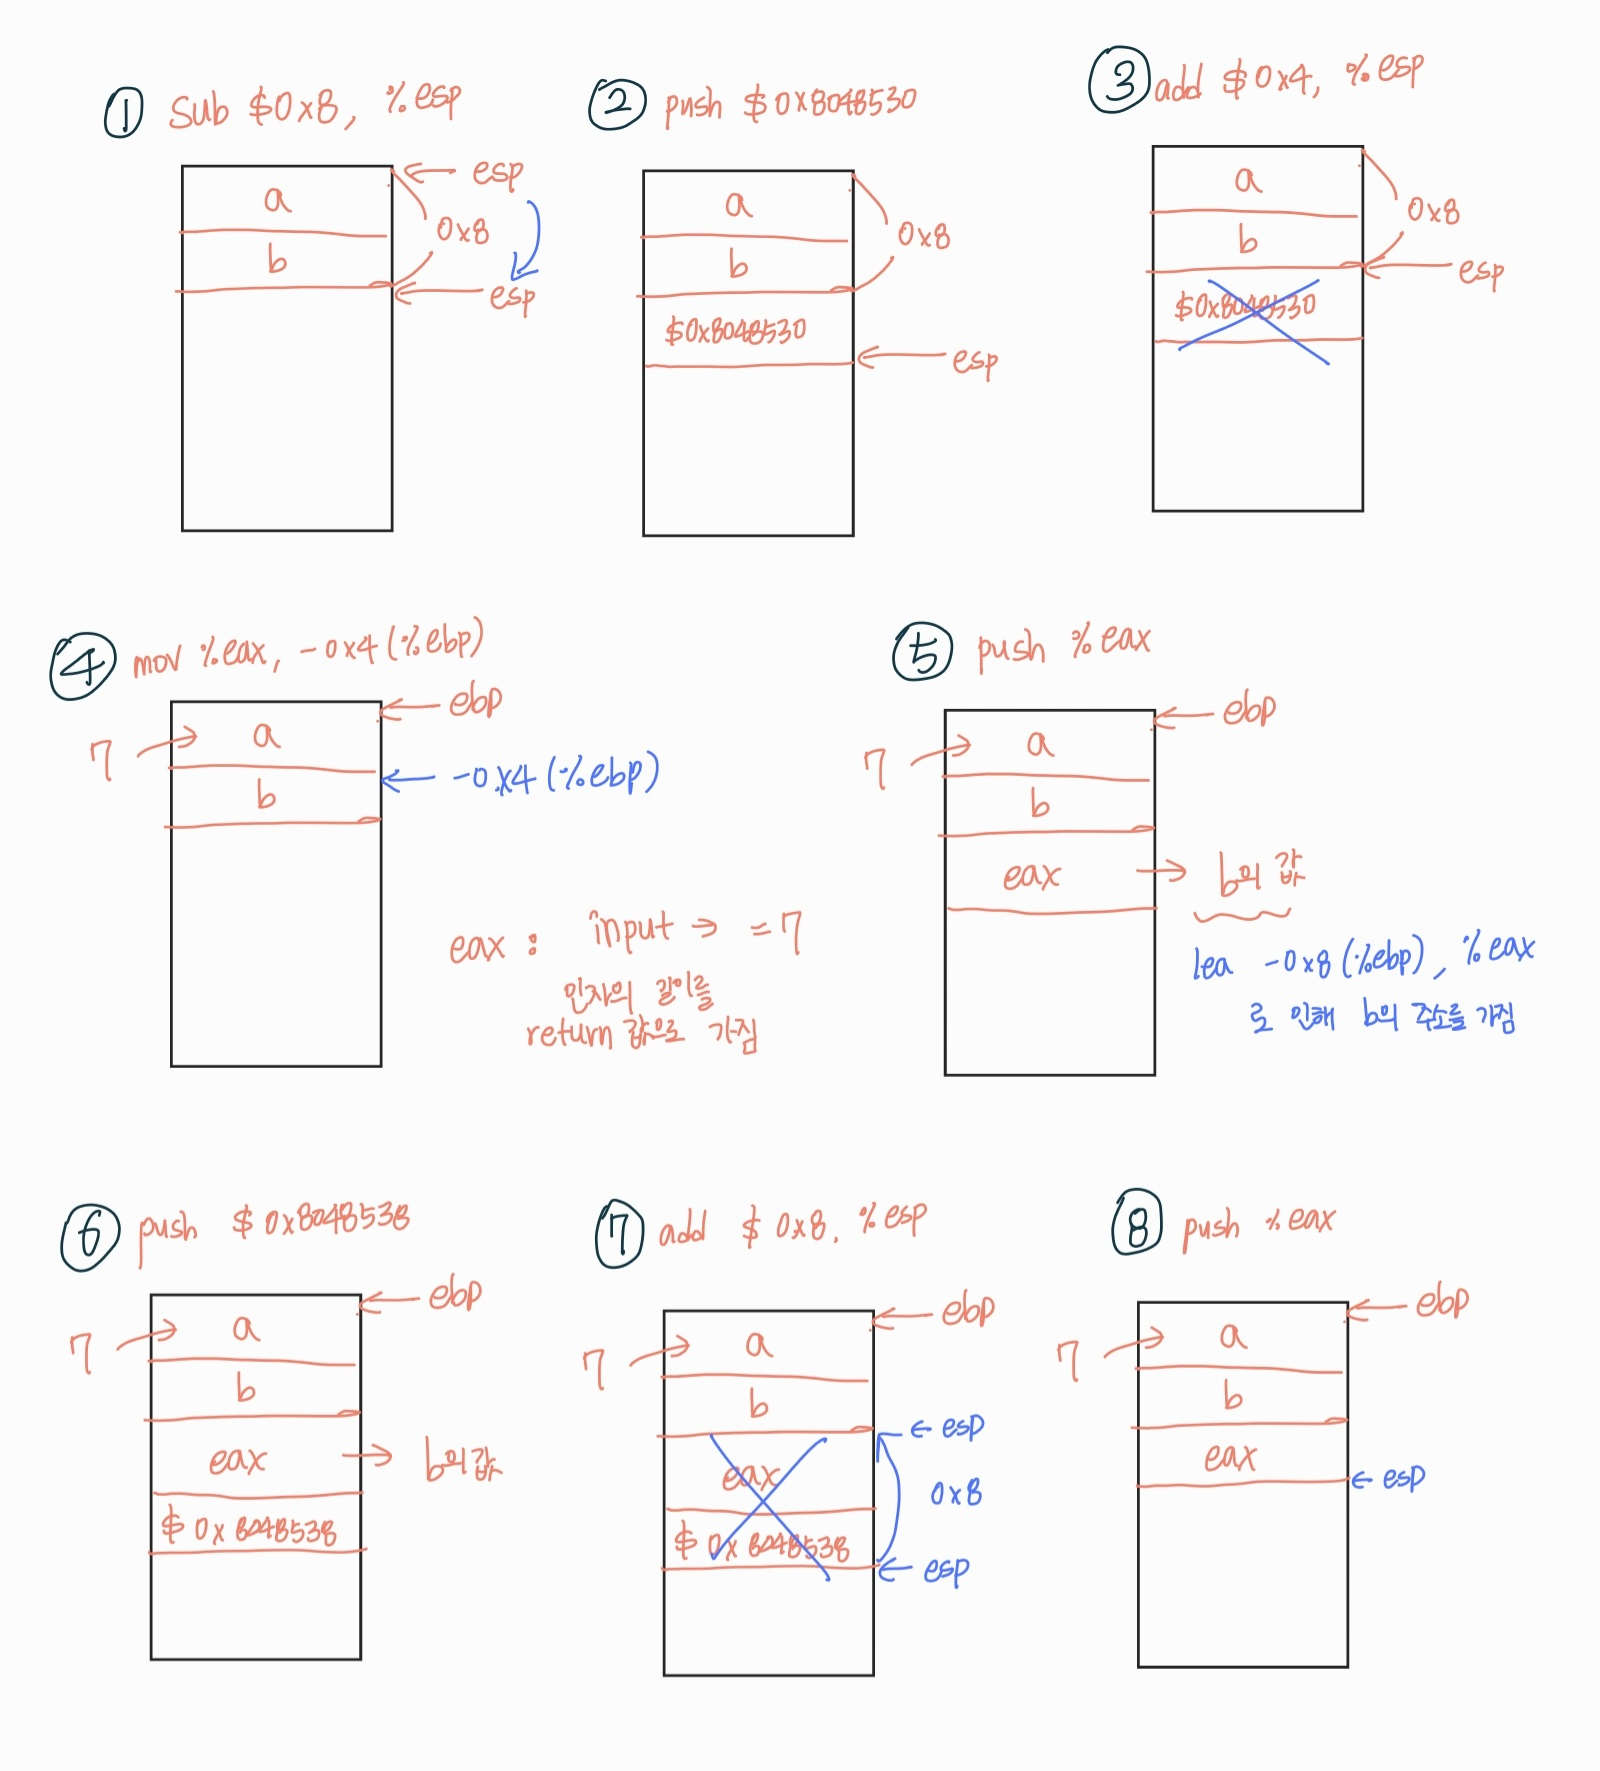 ① Sub $0x8, %esp
a
b
esp
0x8
esp
② push $0x8048530
a
b
$0x8048530
0x8
esp
③ add $0x4, %esp
a
b
$0x8048530
0x8
esp
④ mov %eax, -0x4(%ebp)
7
a
b
ebp
-0x4(%ebp)
eax : input → =7
인자의 길이를
return 값으로 가짐
⑤ push %eax
7
a
b
eax
ebp
b의 값
lea -0x8(%ebp), %eax
로 인해 b의 주소를 가짐
⑥ push $0x8048538
7
a
b
eax
$0x8048538
ebp
b의 값
⑦ add $0x8, %esp
7
a
b
eax
$0x8048538
ebp
esp
0x8
esp
⑧ push %eax
7
a
b
eax
ebp
esp